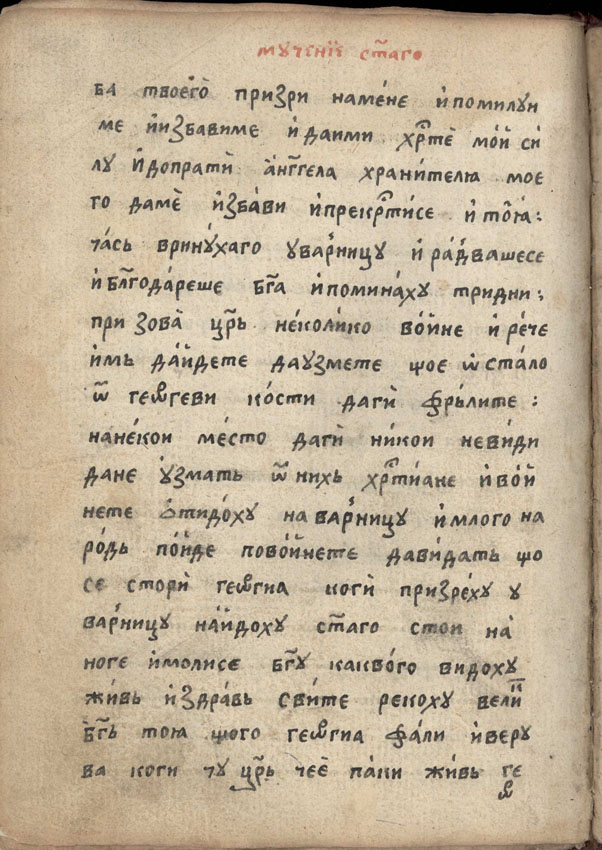 мꙋченїе ст҃аго
ба твоего̀ призри наме́не и҆помилꙋи
ме и҆избавиме и҆ даими хрⷭ҇тѐ мо́й си
лꙋ и҆допратѝ а҆нг҃гела храни́телю мое
го дамѐ и҆зба́ви и҆прекрⷭ҇тисе и҆ то́ю:
ча́сь вринꙋ́хаго ꙋварницꙋ и҆ ра́двашесе
и҆ блг҃ода́реше бг҃а и҆помина́хꙋ тридни:
при зова̀ цр҃ь не́колико во́йне и҆ ре́че
и҆мь да́йдете даꙋзмете щое ѡ҆ста́ло
ѿ геѡ҆ргеви ко́сти дагѝ фрьлите:
нане́кои ме́сто дагѝ ни́кои неви́ди
дане ꙋ҆змать ѿ нихь хрⷭ҇тиане и҆во́й
нете ѻ҆тидо́хꙋ на варницꙋ и҆млого на
ро́дь по́йде пово́йнете дави́дать що
се сторѝ геѡ҆ргиа когѝ призре́хꙋ ꙋ
варницꙋ на́йдохꙋ ст҃аго стои на́
ноге и҆молисе бг҃ꙋ какво́го видохꙋ
живь и҆здра́вь сви́те рекохꙋ вели́й
бг҃ь тою щого геѡ҆ргиа фали и҆верꙋ
ва коги чꙋ цр҃ь чеѐ паки живь ге
ѡ҆